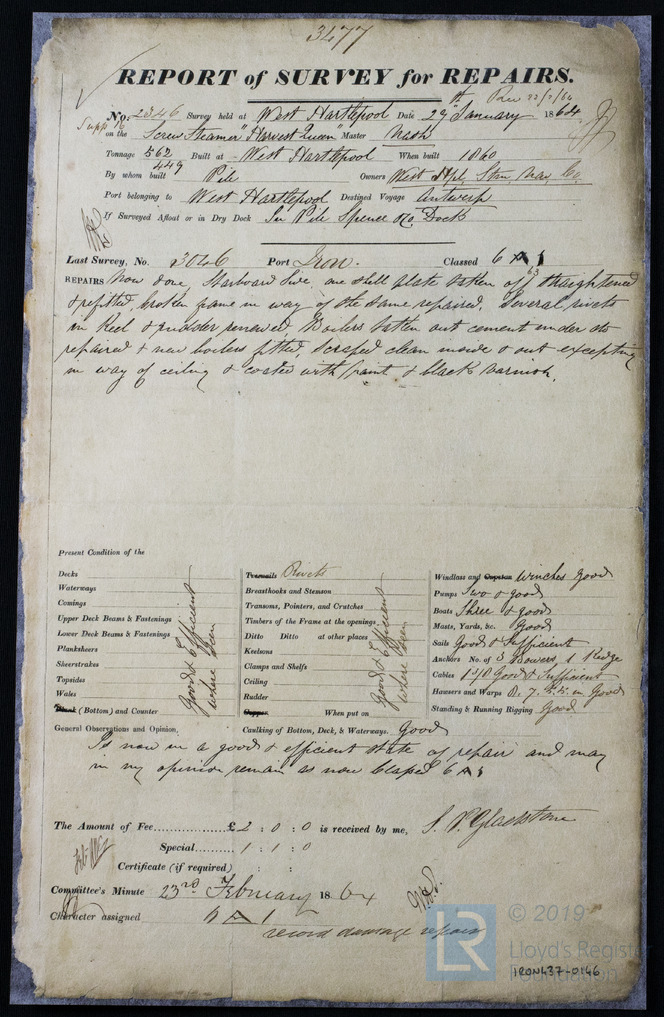 3477
REPORT of SURVEY for REPAIRS.
Rec 22/2/64
No. 2346 Survey held at West Hartlepool Date 29th January 1864
on the Screw Steamer "Harvest Queen" Master Nash
Tonnage 562 Built at West Hartlepool When built 1860
449
By whom built Pile Owners West Hpl. Stm. Nav. Co.
Port belonging to West Hartlepool Destined Voyage Antwerp
If Surveyed Afloat or in Dry Dock In Pile Spence & Co. Dock
Last Survey, No. 3046 Port Iron. Classed 6 A 1
63
REPAIRS Now done, Starboard side, one shell plate taken off straightened
& refitted, broken frame in way of the same repaired, Several rivets
in Keel & rudder renewed, Boilers taken out cement under do
repaired & new boilers fitted, scraped clean inside & out excepting
in way of ceiling & coated with paint & black varnish.
Present Condition of the
Decks
Waterways
Comings
Upper Deck Beams & Fastenings
Lower Deck Beams & Fastenings
Planksheers
Sheerstrakes
Topsides
Wales
Plank (Bottom) and Counter
Good & Efficient
where seen
Treenails Rivets
Breasthooks and Stemson
Transoms, Pointers, and Crutches
Timbers of the Frame at the openings
Ditto Ditto at other places
Keelsons
Clamps and Shelfs
Ceiling
Rudder
Copper When put on
Good & Efficient
where seen
Caulking of Bottom, Deck, & Waterways. Good
Windlass and Capstan Winches Good
Pumps Two & good
Boats Three & good
Masts, Yards, &c. Good
Sails Good & Sufficient
Anchors No. of 3 Bowers, 1 Kedge
Cables Good & Sufficient
Hawsers and Warps Good
Standing & Running Rigging Good
General Observations and Opinion,
Is now in a good & efficient state of repair and may
in my opinion remain as now Classed. 6 A 1
The Amount of Fee............£ 2 : 0 : 0 is received by me, S. P. Gladstone
Special......... 1 : 1 : 0
Certificate (if required) : :
Committee's Minute 23rd February 1864
Character assigned 6 A 1
record damage repairs
LR
© 2019
Lloyd's Register
Foundation
IRON437-0146